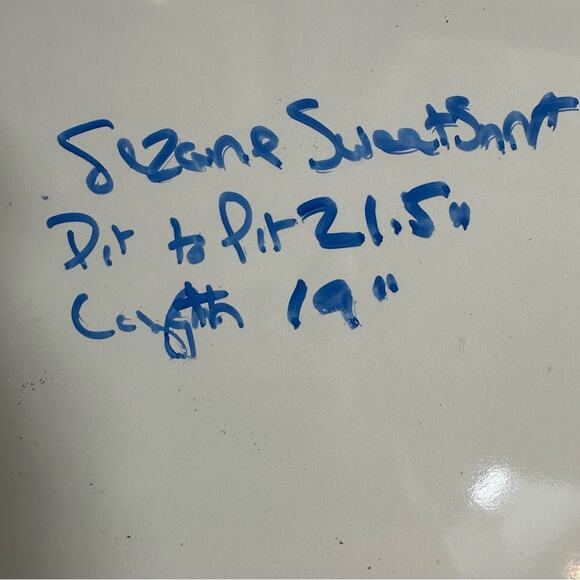 Sezane Sweatshirt
Pit to Pit 21.5"
Length 19"